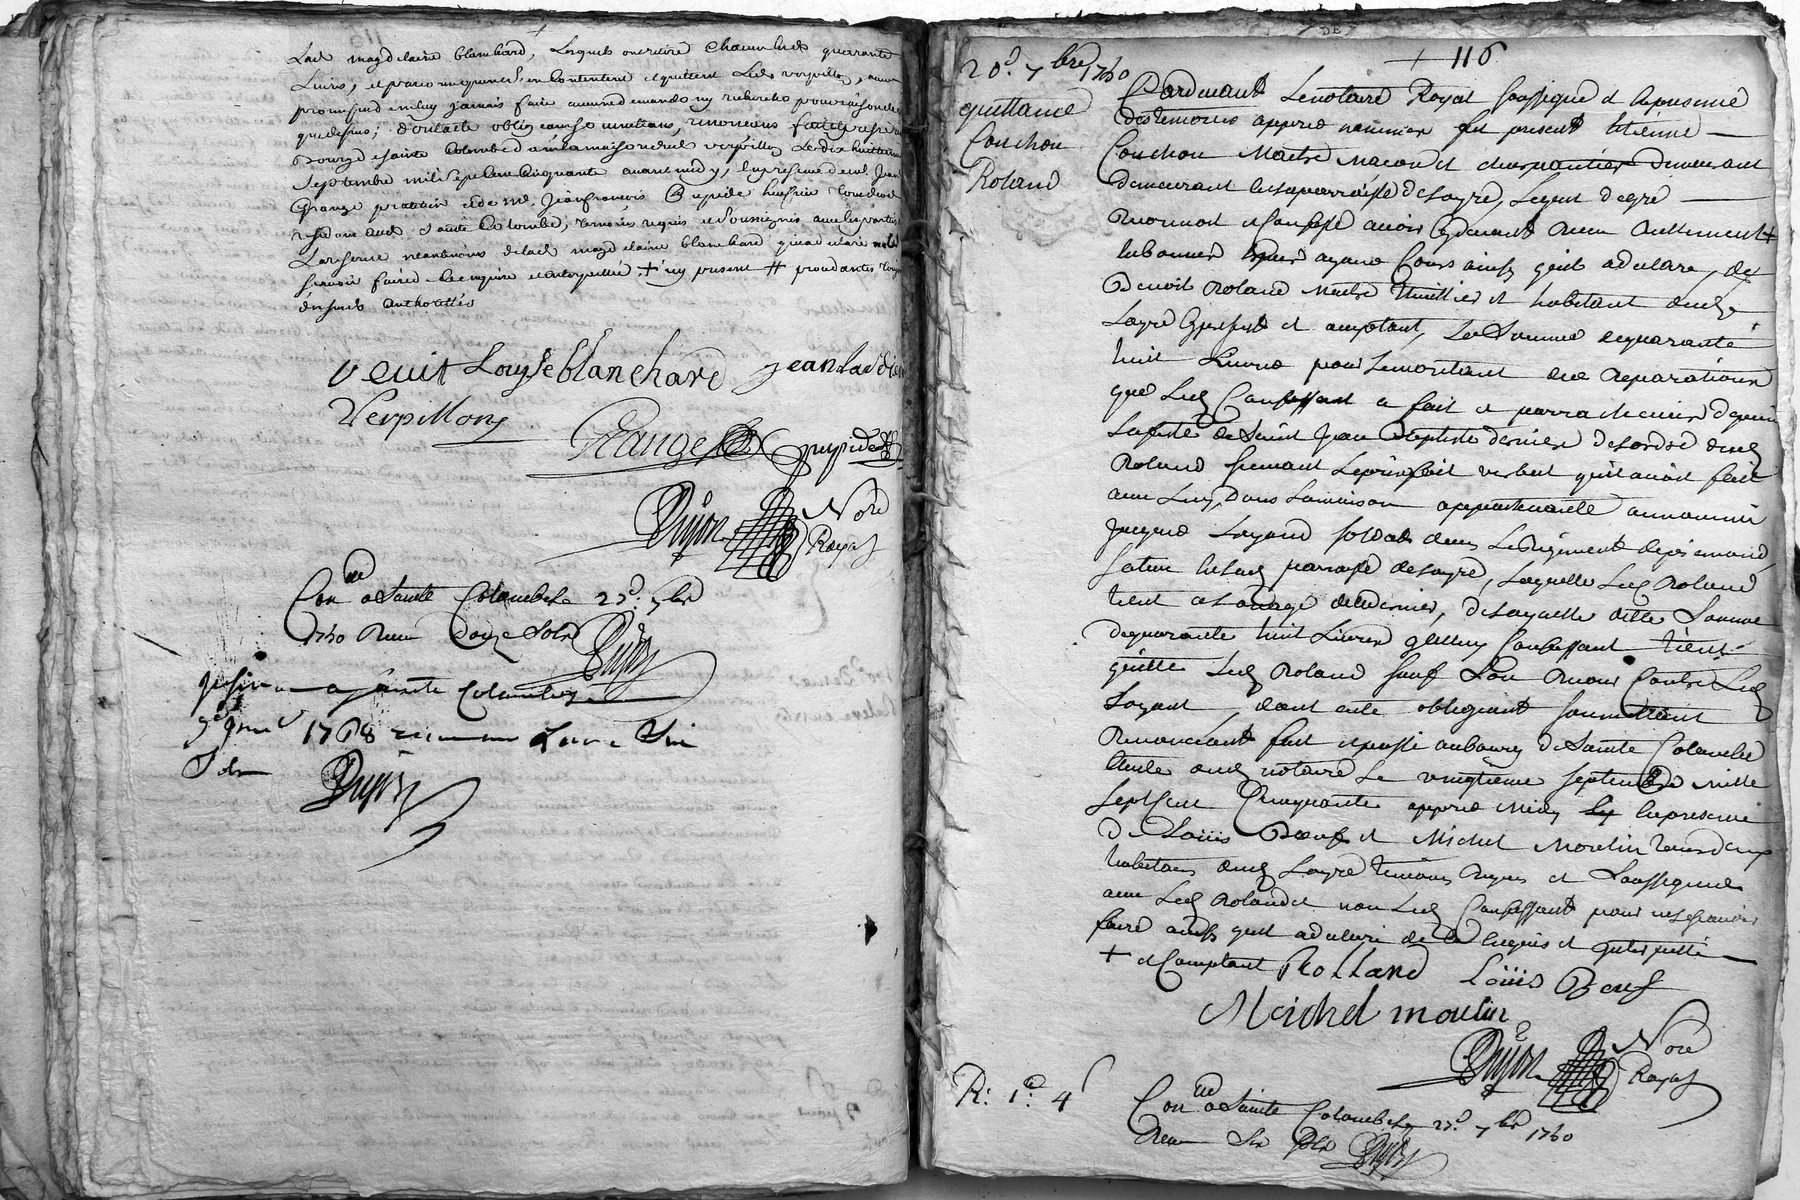 Lad. magdelaine blanchard, Lesquels ont retiré chacun lesd. quarante
Livres, et par consequent s'en contentent et quittent Led. verpillon, avec
promesse de n'en luy jamais faire aucune demande ny recherche pour raison de ce
que dessus, dont acte oblig.
Bourg de sainte Colombe dans la maison dud. verpillon Le dix huitieme
septembre mil sept cent cinquante avant midy, En presence de sr. Jean
Grange praticien et de me. Jean françois huissier
aud. sainte Colombe, temoins requis et soussignés avec les parties
a la reserve neantmoins de lad. magdelaine blanchard qui a declaré
scavoir faire de ce enquise et interpellée + icy present # procedantes
dessus authorités
veuit Louyse blanchard jean
Verpillon
Grange
Dujon Nore
Royal
Con. a Sainte Colombe le 23e. 7bre
1750 Reçu Douze Sols
Dujon
a sainte Colombe
1768
Sols
Dujon
+ 116
20e. 7bre 1750
quittance
Couchou
Roland
Pardevant Le notaire Royal soussigné et En presence
des temoins apprés nommés fut present Etienne
Couchou Maitre Macon et charpentier demeurant
demeurant en la parroisse de Loyre, Lequel de gré
Reconnoit et Confesse avoir cy devant reçu reellement +
en bonnes Especes ayant Cours ainsy qu'il a declaré, de
Benoit Roland Maitre Thuillier et habitant aud.
Loyre Cy present et acceptant, La Somme de quarante
huit Livres pour Le montant des Reparations
que Led. Confessant a fait et parrachevées depuis
La feste de Saint Jean Baptiste dernier de L'ordre dud.
Roland suivant Le prix fait verbal qu'il avoit fait
avec Luy, dans La maison appartenante au nommé
Jacques Loyard soldat dans Le Regiment de piemond
scituée en lad. parroisse de Loyre, Laquelle Led. Roland
tient a Louage de ce dernier, de Laquelle ditte Somme
de quarante huit Livres Led. Confessant tient
quitte Led. Roland sauf Son Recours Contre Led.
Loyard dont acte obligeant soumettant
Renonceant fait et passé au bourg de Sainte Colombe
Etude dud. notaire Le vingtieme septembre mille
sept Cent Cinquante apprés Midy En presence
de Loüis Bœuf et Michel Moulin tous deux
habitans aud. Loyre temoins Requis et Soussignés
avec Led. Roland et non Led. Confessant pour ne scavoir
faire ainsy qu'il a declaré de ce Enquis et interpellé
+ et Comptant Rolland Loüis Beuf
Meichel moulin
Dujon Nore
Royal
R: 1. 4s
Con. a Sainte Colombe le 23e. 7bre 1750
Reçu Six Sols Dujon